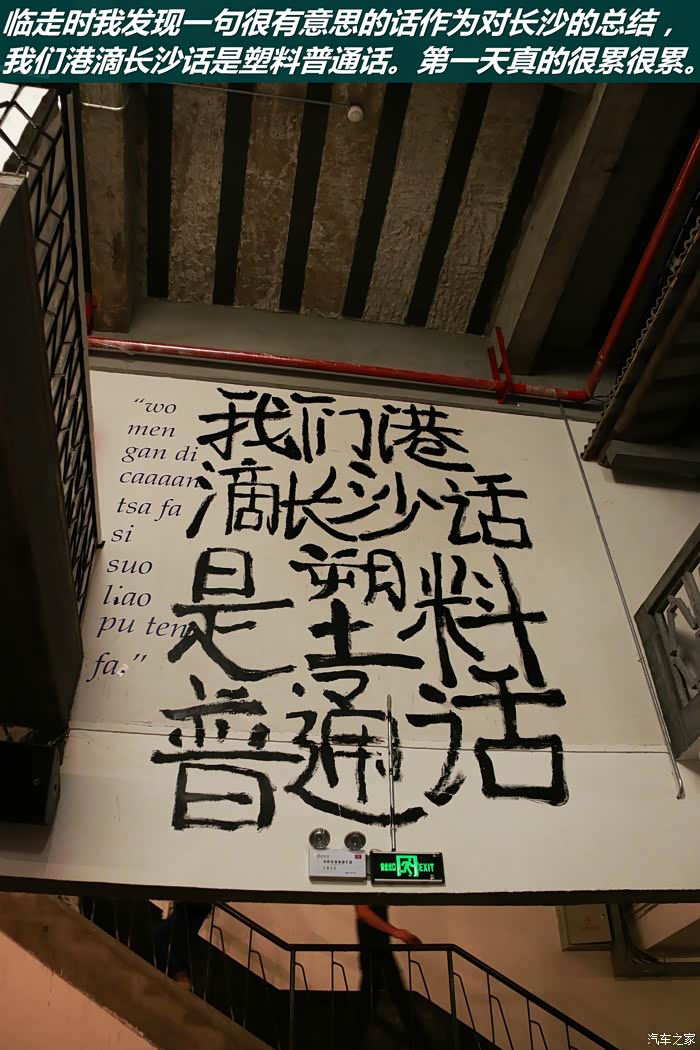 临走时我发现一句很有意思的话作为对长沙的总结，
我们港滴长沙话是塑料普通话。第一天真的很累很累。
“wo
men
gan di
caaaan
tsa fa
si
suo
liao
pu ten
fa.”
我们港
滴长沙话
是塑料
普通话
安全出口 EXIT
汽车之家